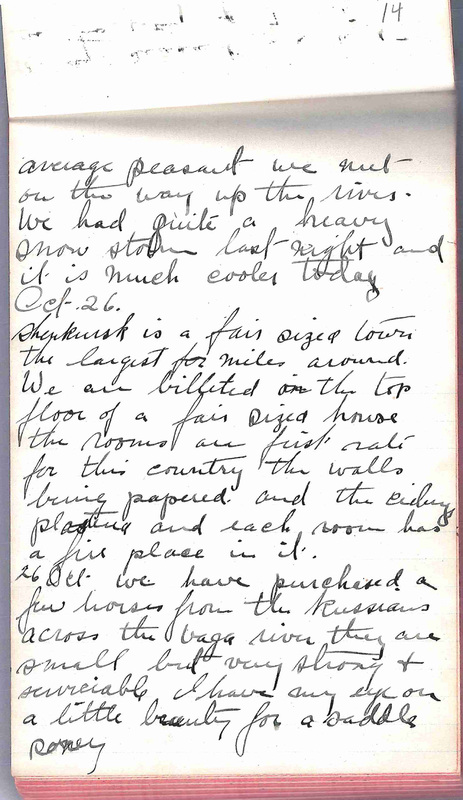 14
average peasant we met
on the way up the river.
We had quite a heavy
snow storm last night and
it is much cooler today
Oct. 26.
Shenkursk is a fair sized town
the largest for miles around.
We are billeted on the top
floor of a fair sized house
the rooms are first rate
for this country the walls
being papered and the
and each room has
a fire place in it.
26 Oct. we have purchased a
few horses from the Russians
across the vaga river they are
small but very strong &
serviciable I have my eye on
a little beauty for a saddle
poney